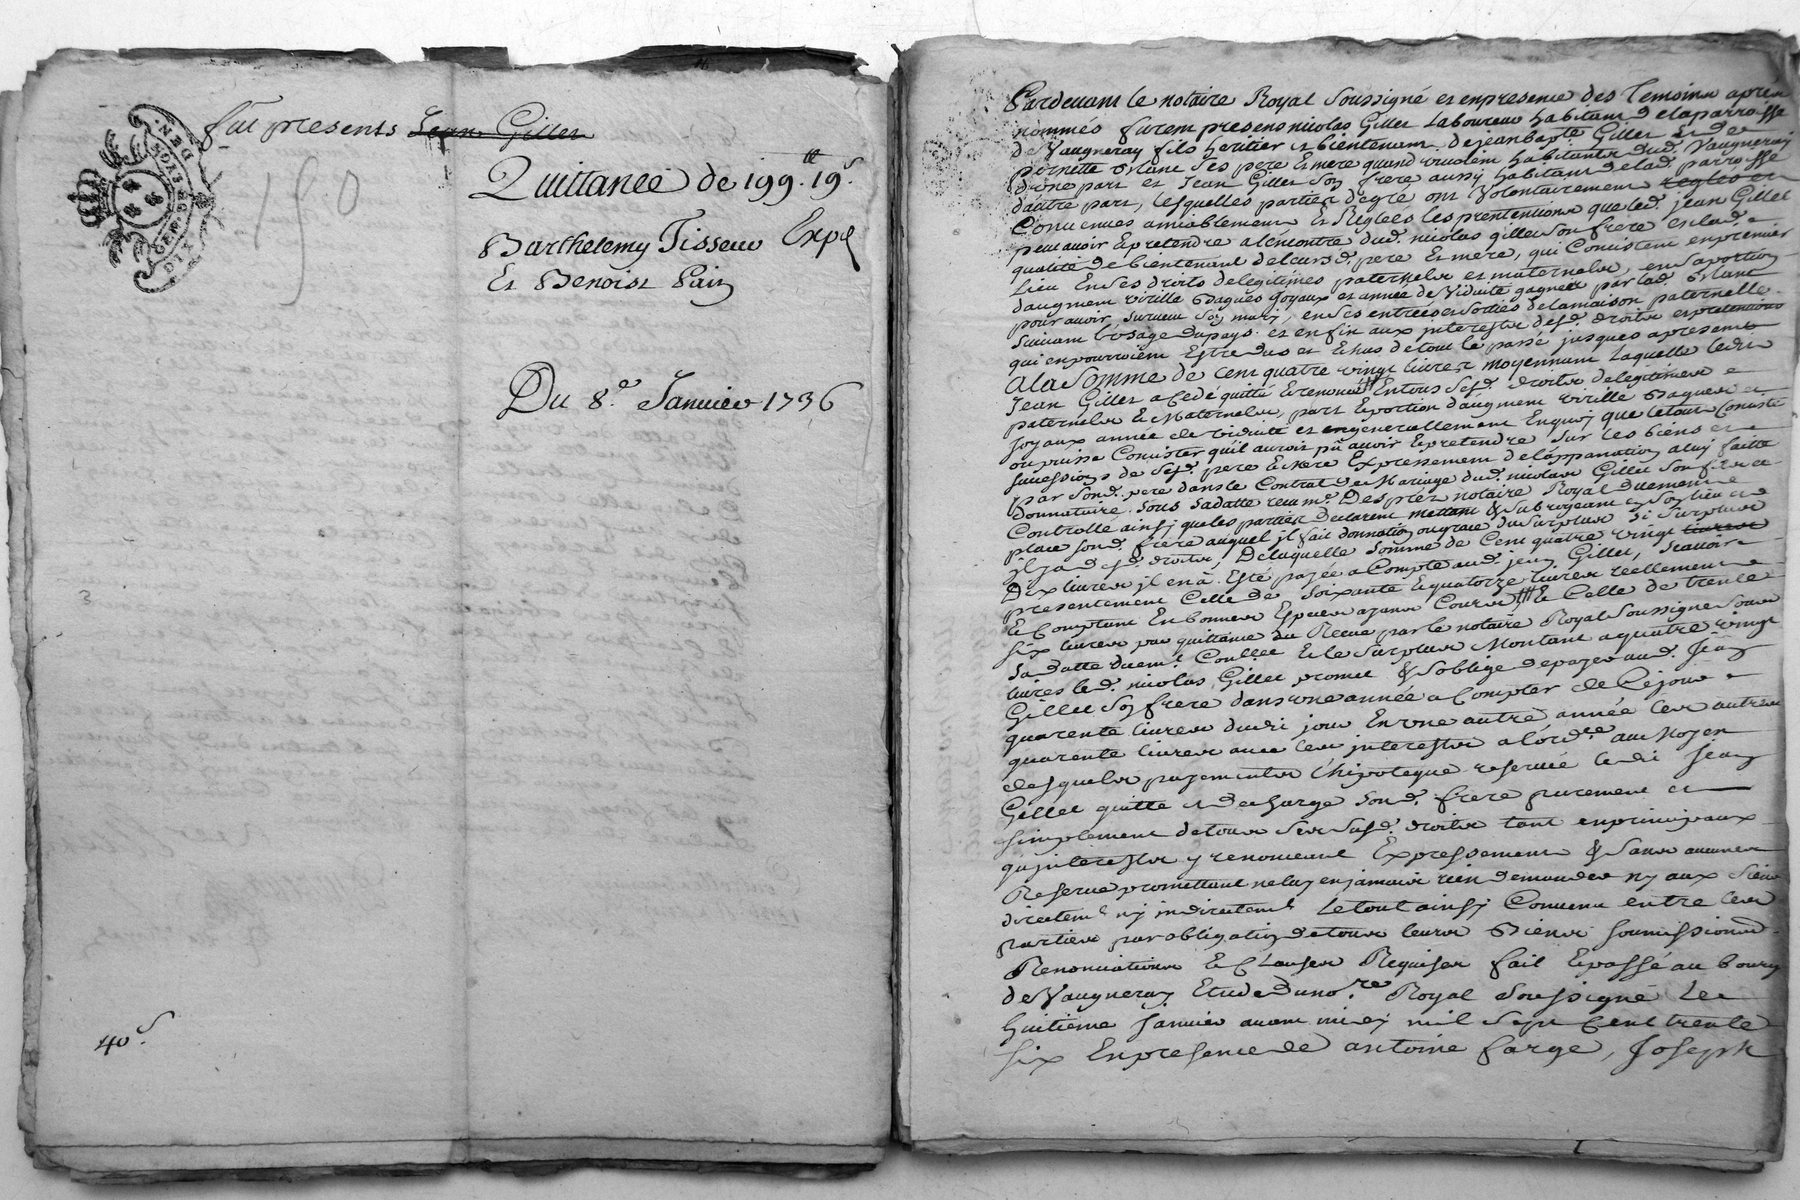 GEN. DE LION
DIX DEN.
fut presents Jean Gillet
Quittance de 199tt. 19s.
Barthelemy Tisseur Expé
Et Benoist Pain
Du 8e. Janvier 1736
40s.
Pardevant le notaire Royal Soussigné et en presence des temoins apres
nommés furent presens nicolas Gillet Laboureur habitant de la parroisse
de Vaugneray fils heritier et bientenant de jean bapte. Gillet et de
pernette ses pere Et mere quand vivoient habitants dud. Vaugneray
d'une part et Jean Gillet son frere aussy habitant de lad. parroisse
d'autre part, lesquelles parties de gré ont Volontairement reglés et
Convenues amiablement Et Reglées les prententions que led. jean Gillet
peut avoir E pretendre a l'encontre dud. nicolas gillet son frere en lad.
qualité de bientenant de leursd. pere Et mere, qui Consistent en premier
Lieu En Ses droits de legitimes paternelx et maternelx, en sa portion
d'augment virille Bagues Joyaux et année de Viduité gagnés par lad.
pour avoir survecu son mary, en ses entrées et sorties de la maison paternelle
suivant l'usage du pays. et en fin aux interestx desd. droits et pretentions
qui en pourroient Estre dus et Echus de tout le passé jusques a present
a la Somme de Cent quatre vingt livres moyennant Laquelle ledit
Jean Gillet a Cedé quitté E renoncé En tous Sesd. droits de legitimes
paternelx Et Maternelx, part E portion d'augment virille Bagues et
joyaux année de viduité et generallement En quoy que le tout Consiste
ou puisse Consister qu'il auroit pû avoir E pretendre Sur les biens et
successions de Sesd. pere Et Mere Expressement de l'appanation a luy faitte
par sond. pere dans le Contrat de Mariage dud. nicolas Gillet son frere
donnataire. Sous sa datte receu Me. Desprez notaire Royal duement
Controllé ainsy que les parties declarent mettant & subrogeant en son lieu et
place sond. frere auquel jl fait donnation ou grace du surplus si surplus
jl y a desd. droits, De laquelle somme de Cent quatre vingt livres
Dix livres jl en a Esté payée a Compte aud. jean Gillet, scavoir
presentement Celle de Soixante E quatorze livres reellement
E Comptant En bonnes Especes ayants Cours, & Celle de trente
six livres par quittance du Receue par le notaire Royal Soussigné sous
sa datte duemt. Conllée Et le surplus Montant a quatre vingt
livres led. nicolas Gillet promet & s'oblige de payer aud. Jean
Gillet son frere dans une année a Compter de Ce jour
quarente livres dudi jour En une autre année les autres
quarente livres avec les interestx a l'ordre au Moyen
desquels payements l'hipoteque reservée ledit Jean
Gillet quitte et decharge sond. frere purement et
simplement de tous ses susd. droits tant en principaux
qu'interestx y renonceant Expressement & sans aucune
Reserve promettant ne luy en jamais rien demander ny aux siens
directemt ny indirectemt Le tout ainsy Convenu entre les
parties par obligation de tous leurs Biens soumissions
Renonciations Et Clauses Requises fait E passé au bourg
de Vaugneray Etude du nore. Royal Soussigné Le
huitieme Janvier avant midy mil Sept Cent trente
six En presence de antoine farge, Joseph